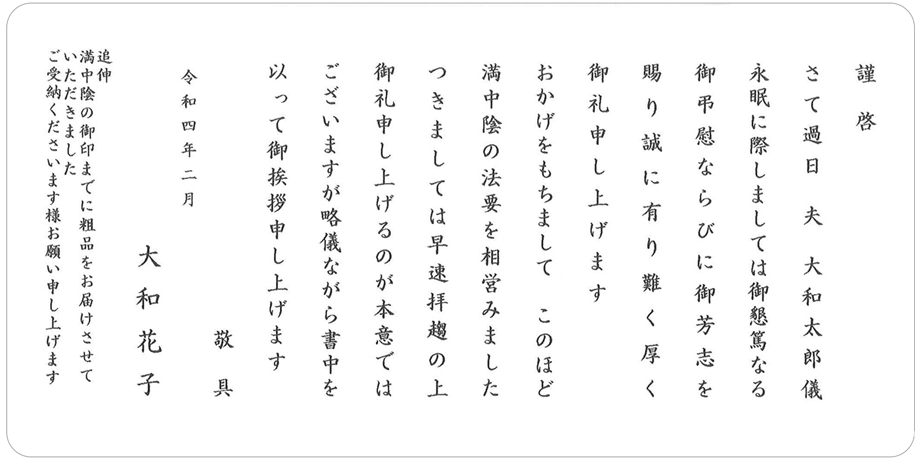 謹啓
さて過日　夫　大和太郎儀
永眠に際しましては御懇篤なる
御弔慰ならびに御芳志を
賜り誠に有り難く厚く
御礼申し上げます
おかげをもちまして　このほど
満中陰の法要を相営みました
つきましては早速拝趨の上
御礼申し上げるのが本意では
ございますが略儀ながら書中を
以って御挨拶申し上げます
敬具
令和四年二月
大和花子
追伸
満中陰の御印までに粗品をお届けさせて
いただきました
ご受納くださいます様お願い申し上げます